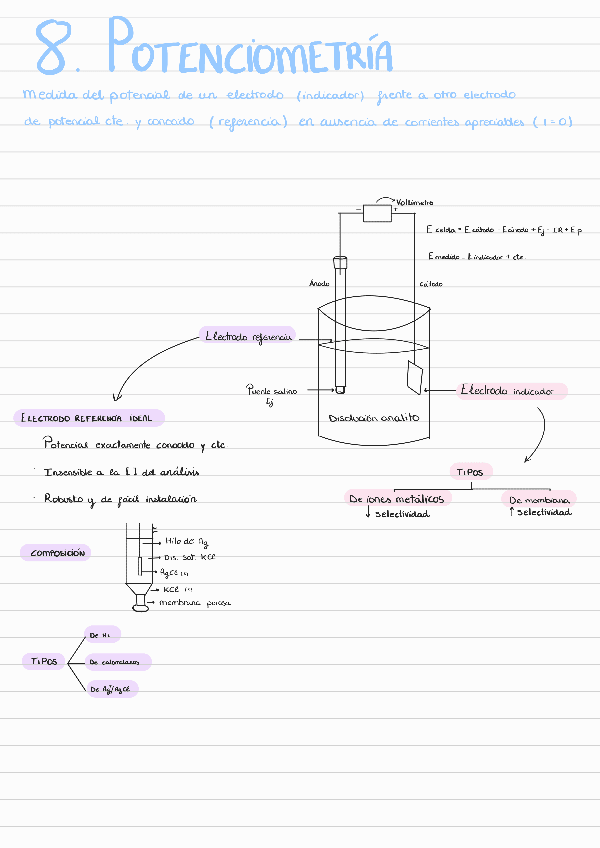 8. POTENCIOMETRÍA
Medida del potencial de un electrodo (indicador) frente a otro electrodo
de potencial cte y conocido (referencia) en ausencia de corrientes apreciables (I=0)
Voltímetro
- +
E celda = E cátodo - E ánodo + Ej - I.R + E p
E medido = E indicador + cte
Ánodo
Cátodo
Electrodo referencia
Puente salino
Ej
Electrodo indicador
Disolución analito
ELECTRODO REFERENCIA IDEAL
Potencial exactamente conocido y cte
· Insensible a la [ ] del análisis
· Robusto y de fácil instalación
TIPOS
De iones metálicos
↓ selectividad
De membrana
↑ selectividad
COMPOSICIÓN
Hilo de Ag
Dis. sat. KCl
AgCl (s)
KCl (s)
membrana porosa
TIPOS
De H₂
De calomelanos
De Ag/AgCl